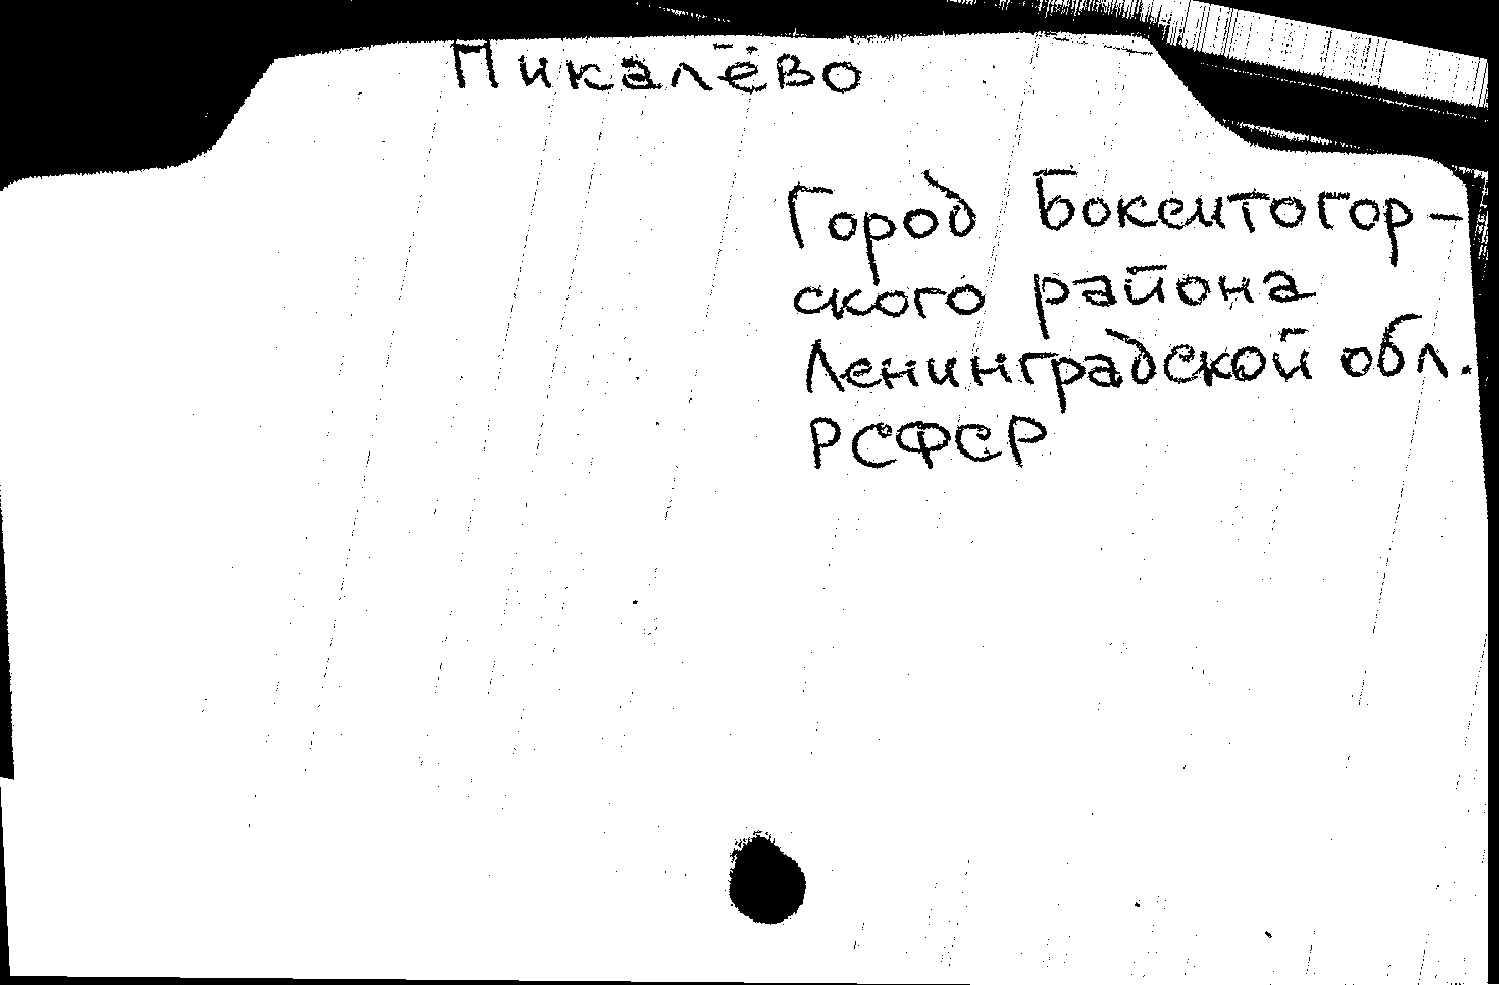 Пикалёво
Город Бокситогор-
ского района
Ленинградской обл.
РСФСР